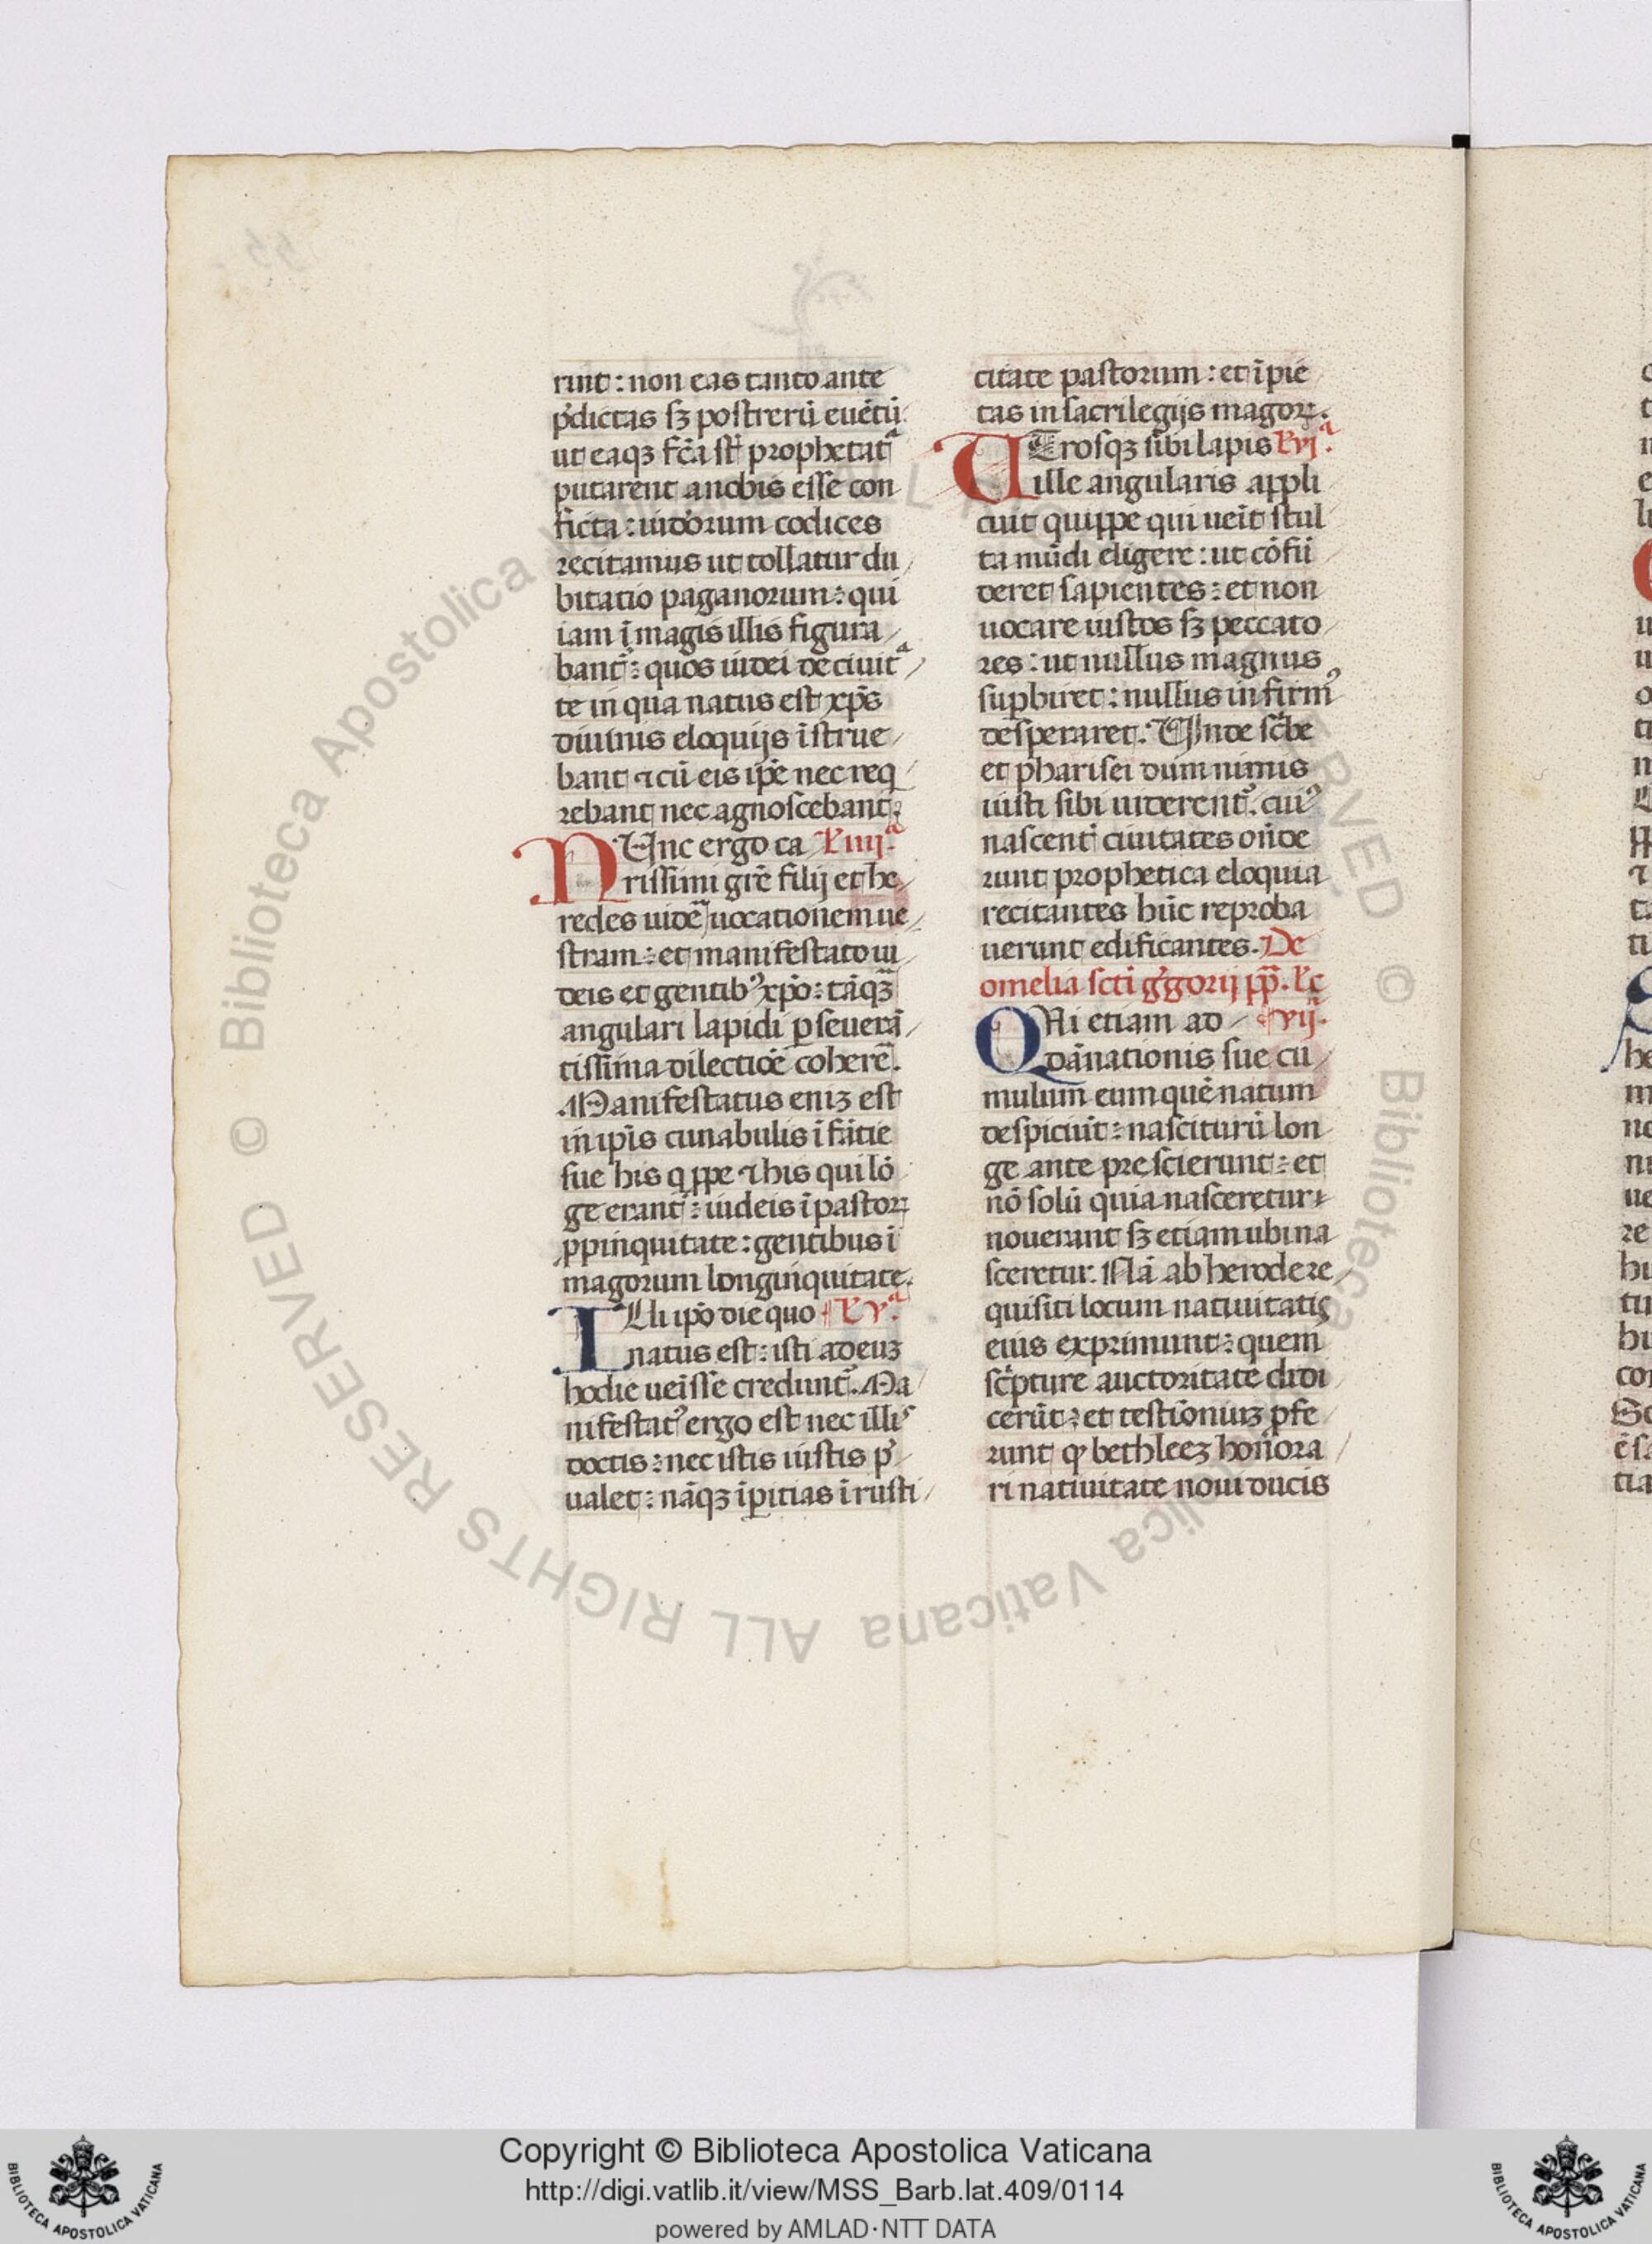 rint : non eas tanto ante
p̄dictas sꝫ postrerū euētū
ut eaqꝫ fc̄a st̄ prophetatᵃ
putarent a nobis esse con
ficta : iudeorum codices
recitamus ut tollatur du
bitatio paganorum : qui
iam ī magis illis figura
bant̄ : quos iudei de ciuitᵃ
te in qua natus est xp̄s
diuinis eloquijs īstrue
bant ⁊ cū eis ip̄e nec req
rebant nec agnoscebant.
NUnc ergo ca Lc̄ xiiijᵃ.
rissimi gr̄e filij et he
redes uidē uocationem ue
stram : et manifestato iu
deis et gentibꝰ xp̄o : tāqꝫ
angulari lapidi ꝑseuerā
tissima dilectiōe coherē.
Manifestatus eniꝫ est
in ip̄is cunabulis īfātie
sue his q̄ppe ⁊ his qui lō
ge erant̄ : iudeis ī pastoꝝ
ꝓpinquitate : gentibus ī
magorum longinquitate.
ILli ip̄o die quo Lc̄ xvᵃ.
natus est : isti ad euꝫ
hodie ueīsse credunt̄. Ma
nifestatꝰ ergo est nec illis
doctis : nec istis iustis p̄
ualet : nāqꝫ īꝑitias ī rusti
citate pastorum : et īpie
tas in sacrilegijs magoꝝ.
UTrosqꝫ sibi lapis Lc̄ xvjᵃ.
ille angularis appli
cuit quippe qui ueīt stul
ta mūdi eligere : ut cōfū
deret sapientes : et non
uocare iustos sꝫ peccato
res : ut nullus magnus
suꝑbiret : nullus infirmꝰ
desperaret. Unde sc̄be
et pharisei dum nimis
iusti sibi uiderent̄. cuiꝰ
nascentꝭ ciuitates oñde
runt prophetica eloquia
recitantes hūc reproba
uerunt edificantes. De
omelia scti g̊gorij pp̄. Lc̄
QUi etiam ad xvijᵃ.
dānationis sue cu
mulum eum quē natum
despiciūt : nasciturū lon
ge ante prescierunt : et
nō solū quia nasceretur
nouerant sꝫ etiam ubi na
sceretur. Nā ab herode re
quisiti locum natiuitatis
eius exprimunt : quem
sc̄pture auctoritate didi
cerūt : et testioniuꝫ ꝓfe
runt ꝙ bethleeꝫ honora
ri natiuitate noui ducis
Copyright © Biblioteca Apostolica Vaticana
http://digi.vatlib.it/view/MSS_Barb.lat.409/0114
powered by AMLAD·NTT DATA
© Biblioteca Apostolica Vaticana ALL RIGHTS RESERVED
© Biblioteca Apostolica Vaticana ALL RIGHTS RESERVED
BIBLIOTECA APOSTOLICA VATICANA
BIBLIOTECA APOSTOLICA VATICANA